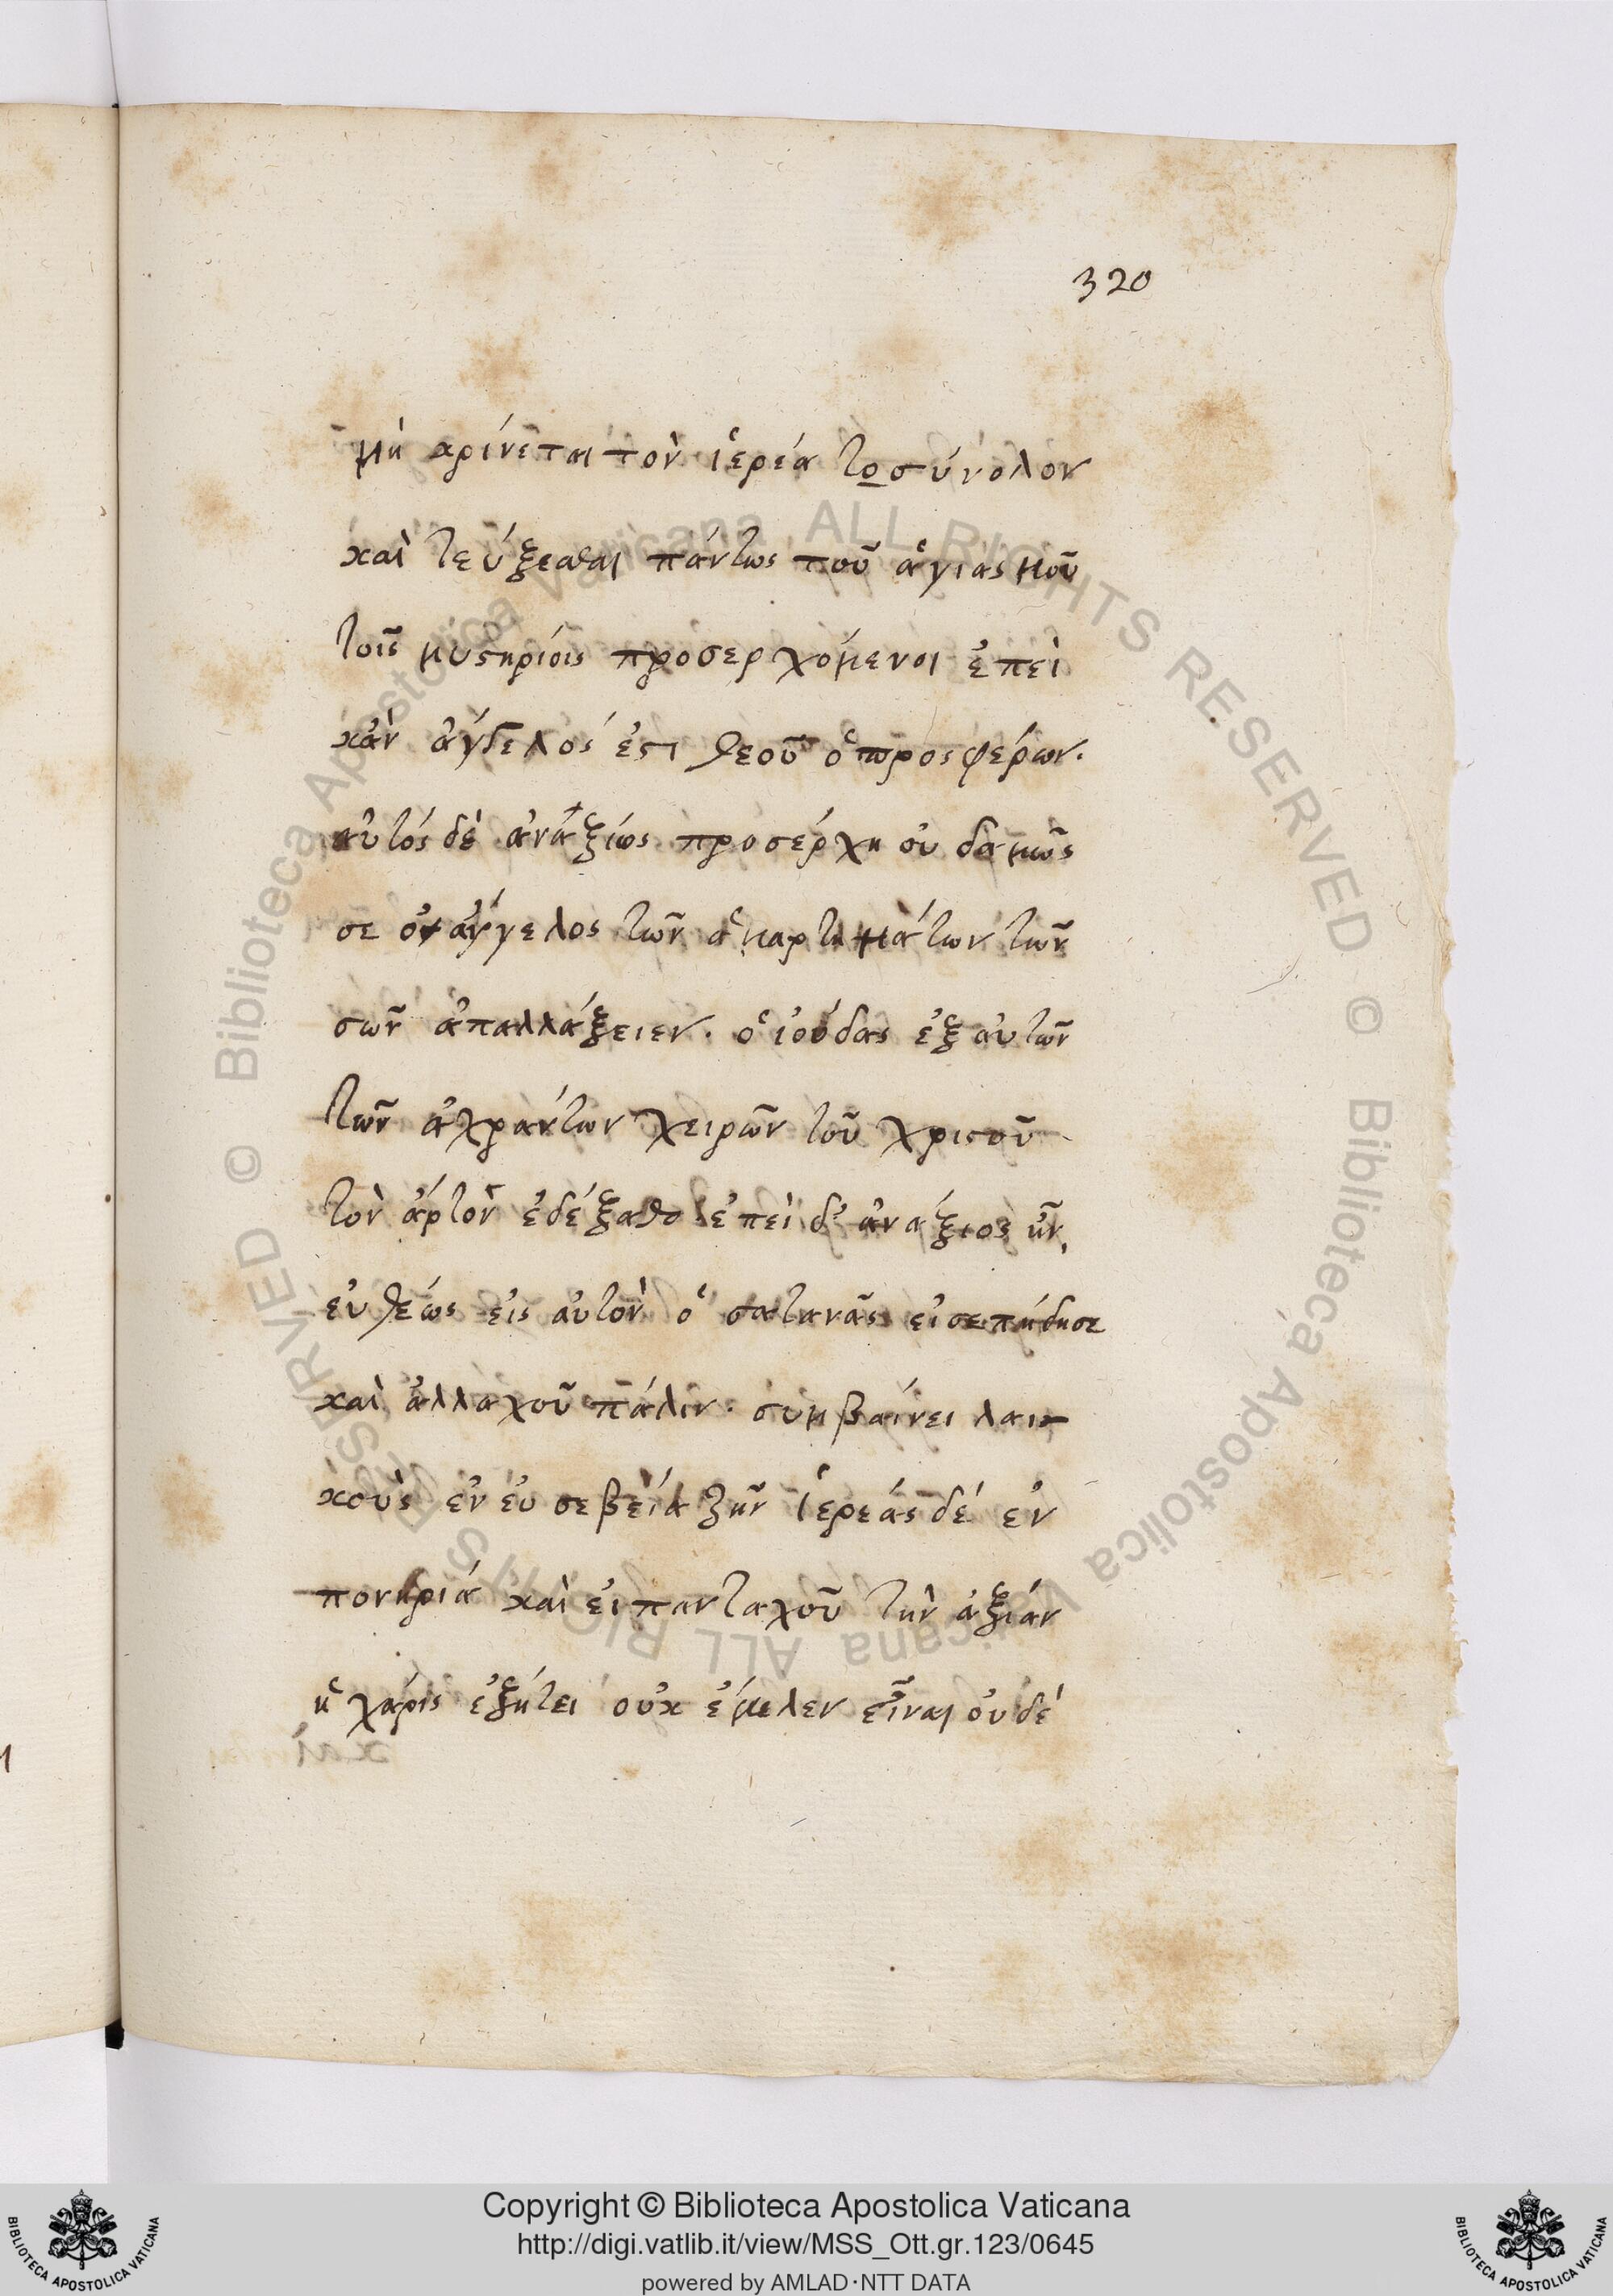 320
μὴ κρίνεται τὸν ἱερέα το σύνολον
καὶ τεύξεσθαι πάντως τοῦ ἁγιασμοῦ
τοῖς μυστηρίοις προσερχόμενοι ἐπεὶ
κἂν ἄγγελός ἐστι θεοῦ ὁ προσφέρων.
αὐτός δὲ ἀναξίως προσέρχη οὐδαμῶς
σε ὁ ἄγγελος τῶν ἁμαρτημάτων τῶν
σῶν ἀπαλλάξειεν. ὁ ἰούδας ἐξ αὐτῶν
τῶν ἀχράντων χειρῶν τοῦ χριστοῦ
τὸν ἄρτον ἐδέξατο ἐπεὶ δ' ἀνάξιος ἦν,
εὐθέως εἰς αὐτὸν ὁ σατανᾶς εἰσεπήδησε
καὶ ἀλλαχοῦ πάλιν. συμβαίνει λαι-
κοὺς ἐν εὐσεβεία ζῆν ἱερεάς δέ ἐν
πονηριά καὶ εἰ πανταχοῦ τὴν ἀξιάν
ἡ χάρις ἐζήτει οὐκ ἔμελεν εἶναι οὐδέ
Copyright © Biblioteca Apostolica Vaticana
http://digi.vatlib.it/view/MSS_Ott.gr.123/0645
powered by AMLAD·NTT DATA
© Biblioteca Apostolica Vaticana ALL RIGHTS RESERVED © Biblioteca Apostolica Vaticana ALL RIGHTS RESERVED
BIBLIOTECA APOSTOLICA VATICANA
BIBLIOTECA APOSTOLICA VATICANA